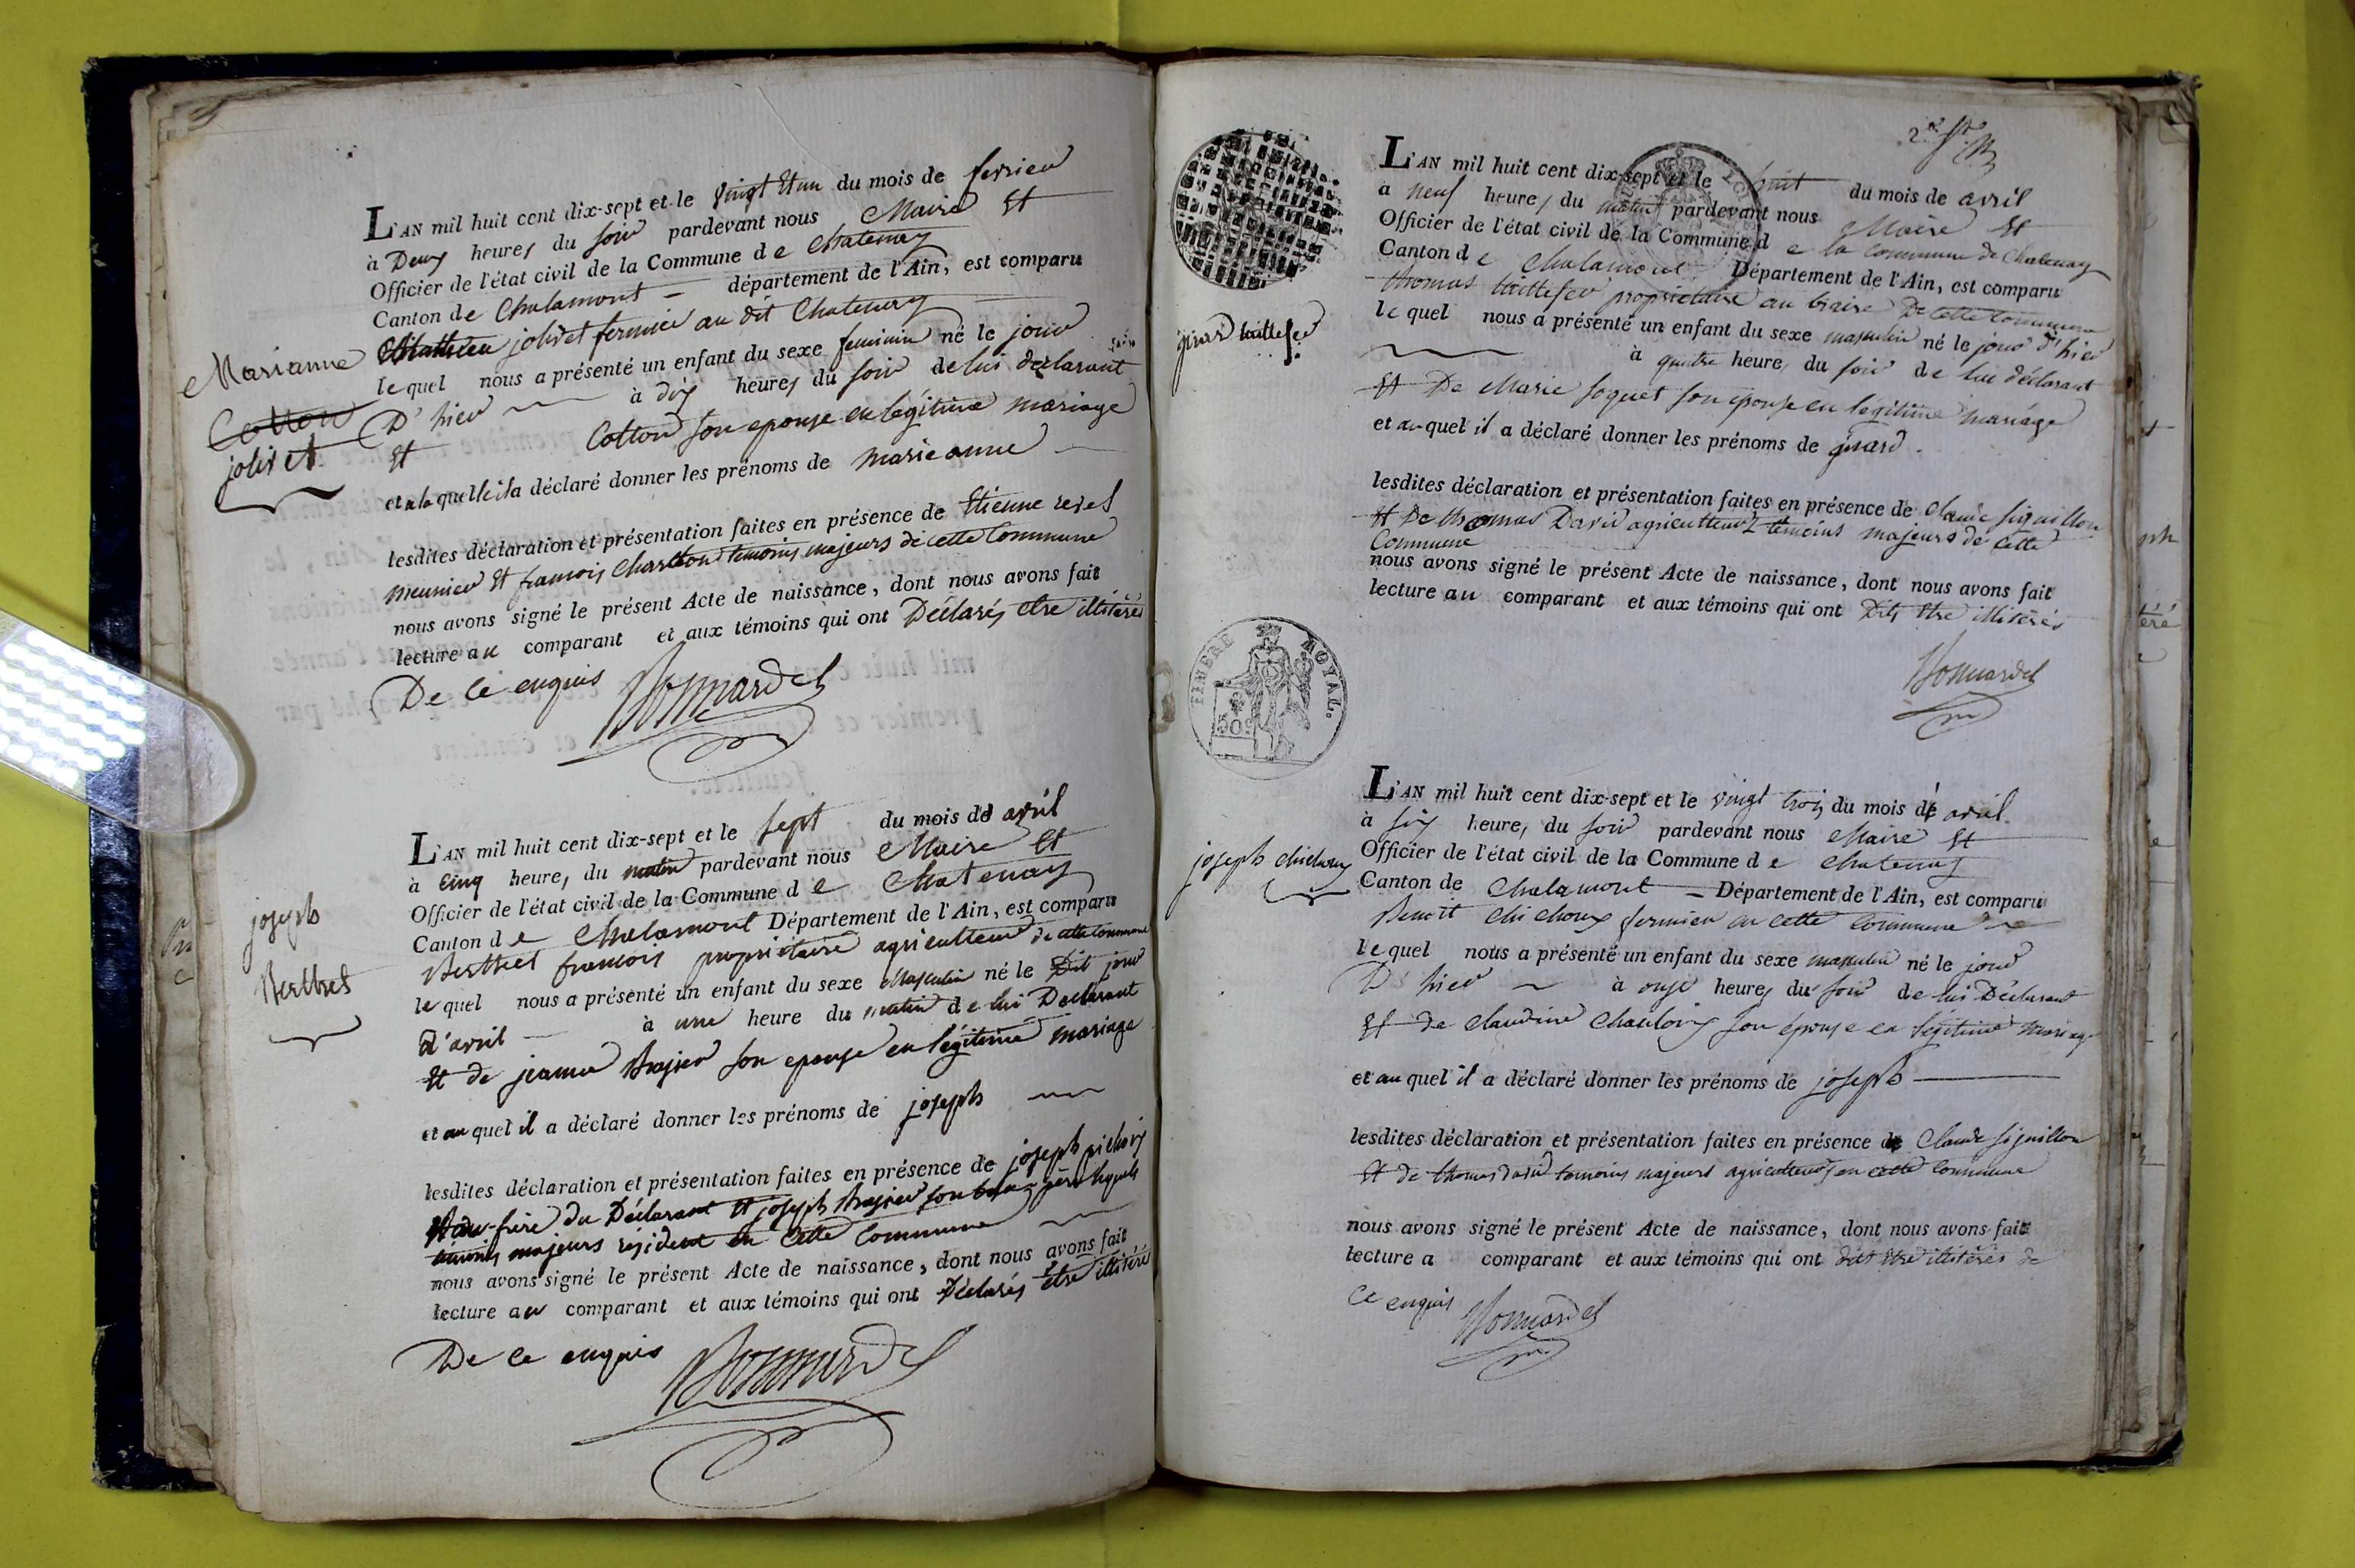 Marianne
Cotton
jolivet
L'AN mil huit cent dix-sept et le vingt et un du mois de fevrier
à Deux heures du soir pardevant nous Maire et
Officier de l'état civil de la Commune de Chatenay
Canton de Chalamont département de l'Ain, est comparu
Mathieu jolivet fermier au dit Chatenay
lequel nous a présenté un enfant du sexe feminin né le jour
D'hier à dix heures du soir de lui declarant
et Cotton son epouse en légitime mariage
et a la quelle il a déclaré donner les prénoms de marie anne
lesdites déclaration et présentation faites en présence de Etienne revel
meunier et francois Charlton temoins majeurs de cette Commune
nous avons signé le présent Acte de naissance, dont nous avons fait
lecture au comparant et aux témoins qui ont Déclarés etre illitérés
De ce enquis Bonnardel
joseph
Berthet
L'AN mil huit cent dix-sept et le sept du mois de avril
à cinq heures du matin pardevant nous Maire et
Officier de l'état civil de la Commune de Chatenay
Canton de Chalamont Département de l'Ain, est comparu
Berthet francois proprietaire agriculteur de cette Commune
lequel nous a présenté un enfant du sexe Masculin né le Dit jour
d'avril à une heure du matin de lui Declarant
et de jeanne Brazier son epouse en légitime mariage
et au quel il a déclaré donner les prénoms de joseph
lesdites déclaration et présentation faites en présence de joseph
Beau-frère du Déclarant et joseph Brazier son beau père lequels
témoins majeurs resident en cette Commune
nous avons signé le présent Acte de naissance, dont nous avons fait
lecture au comparant et aux témoins qui ont Déclarés être illitérés
De ce enquis Bonnardel
girard taillefer
L'AN mil huit cent dix-sept et le huit du mois de avril
à neuf heures du matin pardevant nous Maire et
Officier de l'état civil de la Commune de la commune de Chatenay
Canton de Chalamont Département de l'Ain, est comparu
thomas taillefer proprietaire au De cette Commune
lequel nous a présenté un enfant du sexe masculin né le jour d'hier
à quatre heures du soir de lui déclarant
et De Marie soquet son epouse en légitime mariage
et au quel il a déclaré donner les prénoms de girard.
lesdites déclaration et présentation faites en présence de Claude siguillon
et De thomas David agriculteurs temoins majeurs de cette
Commune
nous avons signé le présent Acte de naissance, dont nous avons fait
lecture au comparant et aux témoins qui ont Dits etre illitérés
Bonnardel
TIMBRE ROYAL.
50c
joseph chichoux
L'AN mil huit cent dix-sept et le vingt trois du mois de avril
à six heures du soir pardevant nous Maire et
Officier de l'état civil de la Commune de Chatenay
Canton de Chalamont Département de l'Ain, est comparu
Benoit Chichoux fermier en cette Commune
lequel nous a présenté un enfant du sexe masculin né le jour
D'hier à onze heures du soir de lui Déclarant
et de claudine son épouse en légitime mariage
et au quel il a déclaré donner les prénoms de joseph
lesdites déclaration et présentation faites en présence de Claude siguillon
et de thomas david temoins majeurs agriculteurs en cette Commune
nous avons signé le présent Acte de naissance, dont nous avons fait
lecture a comparant et aux témoins qui ont dit etre illitérés de
ce enquis Bonnardel